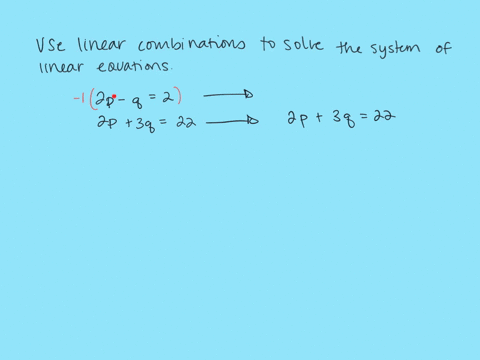 Use linear combinations to solve the system of
linear equations.
-1(2p - q = 2) →
2p + 3q = 22 → 2p + 3q = 22